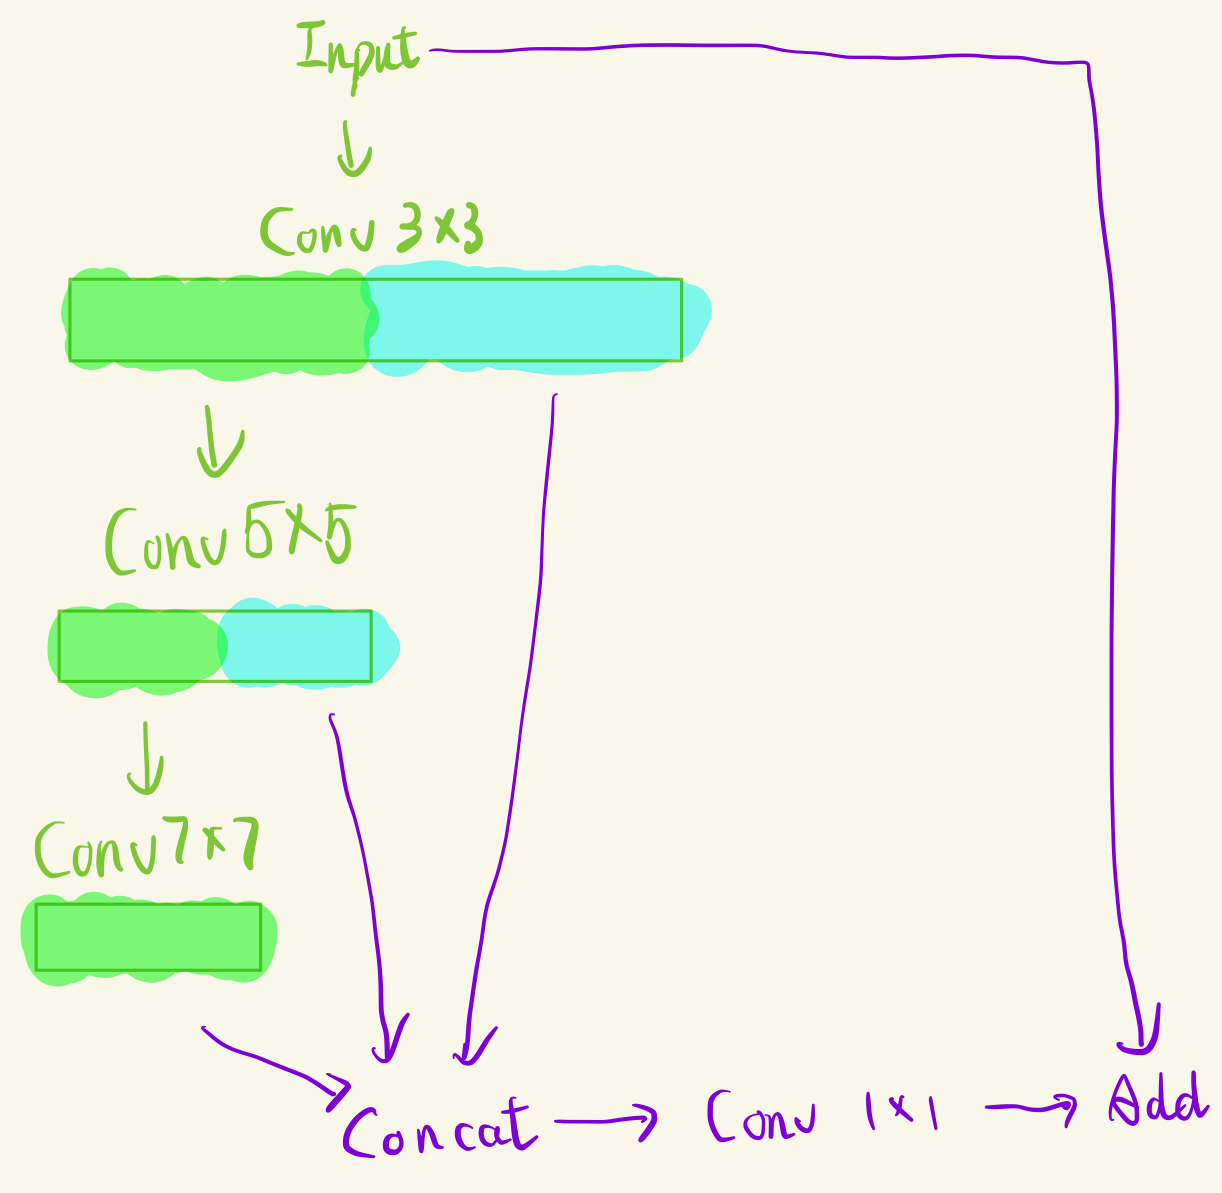 Input
Conv 3x3
Conv 5x5
Conv 7x7
Concat
Conv 1x1
Add